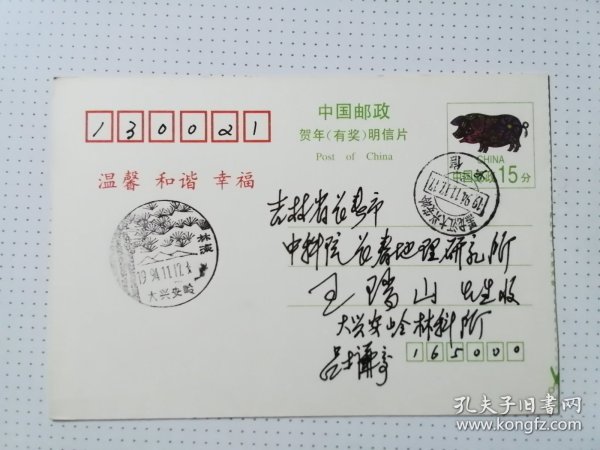 130021
中国邮政
贺年(有奖)明信片
Post of China
CHINA
中国邮政15分
温馨 和谐 幸福
林海
1994.11.12
大兴安岭
黑龙江大兴安岭
1994.11.12.17
吉林省长春市
中科院长春地理研究所
王 山 先生收
大兴安岭林科所
165000
孔夫子旧书网
www.kongfz.com